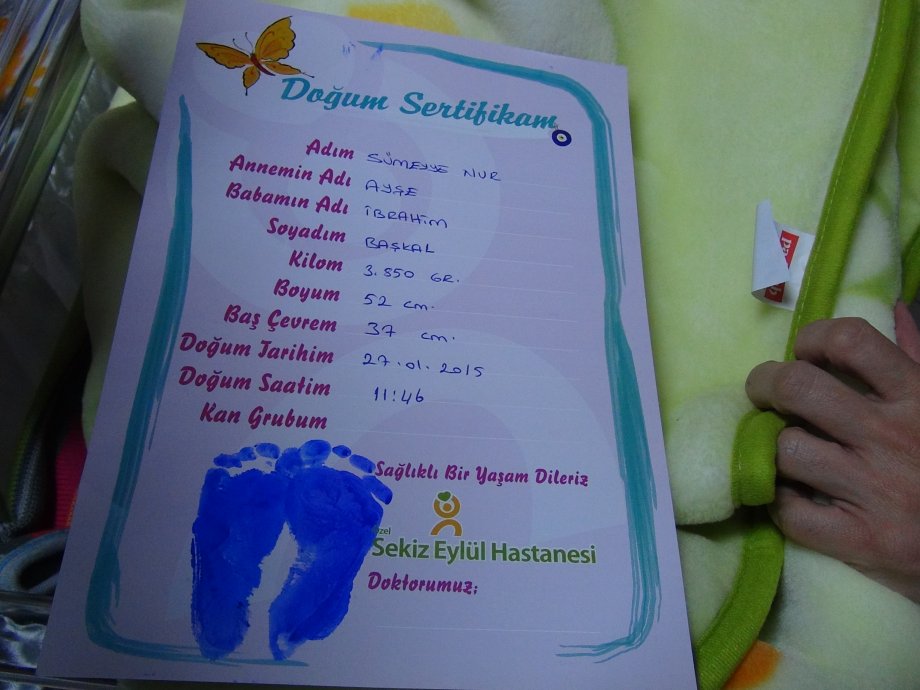 Doğum Sertifikam
Adım SÜMEYYE NUR
Annemin Adı AYŞE
Babamın Adı İBRAHİM
Soyadım BAŞKAL
Kilom 3.550 GR.
Boyum 52 cm.
Baş Çevrem 37 cm.
Doğum Tarihim 27.01.2015
Doğum Saatim 11:46
Kan Grubum
Sağlıklı Bir Yaşam Dileriz
Özel
Sekiz Eylül Hastanesi
Doktorumuz;